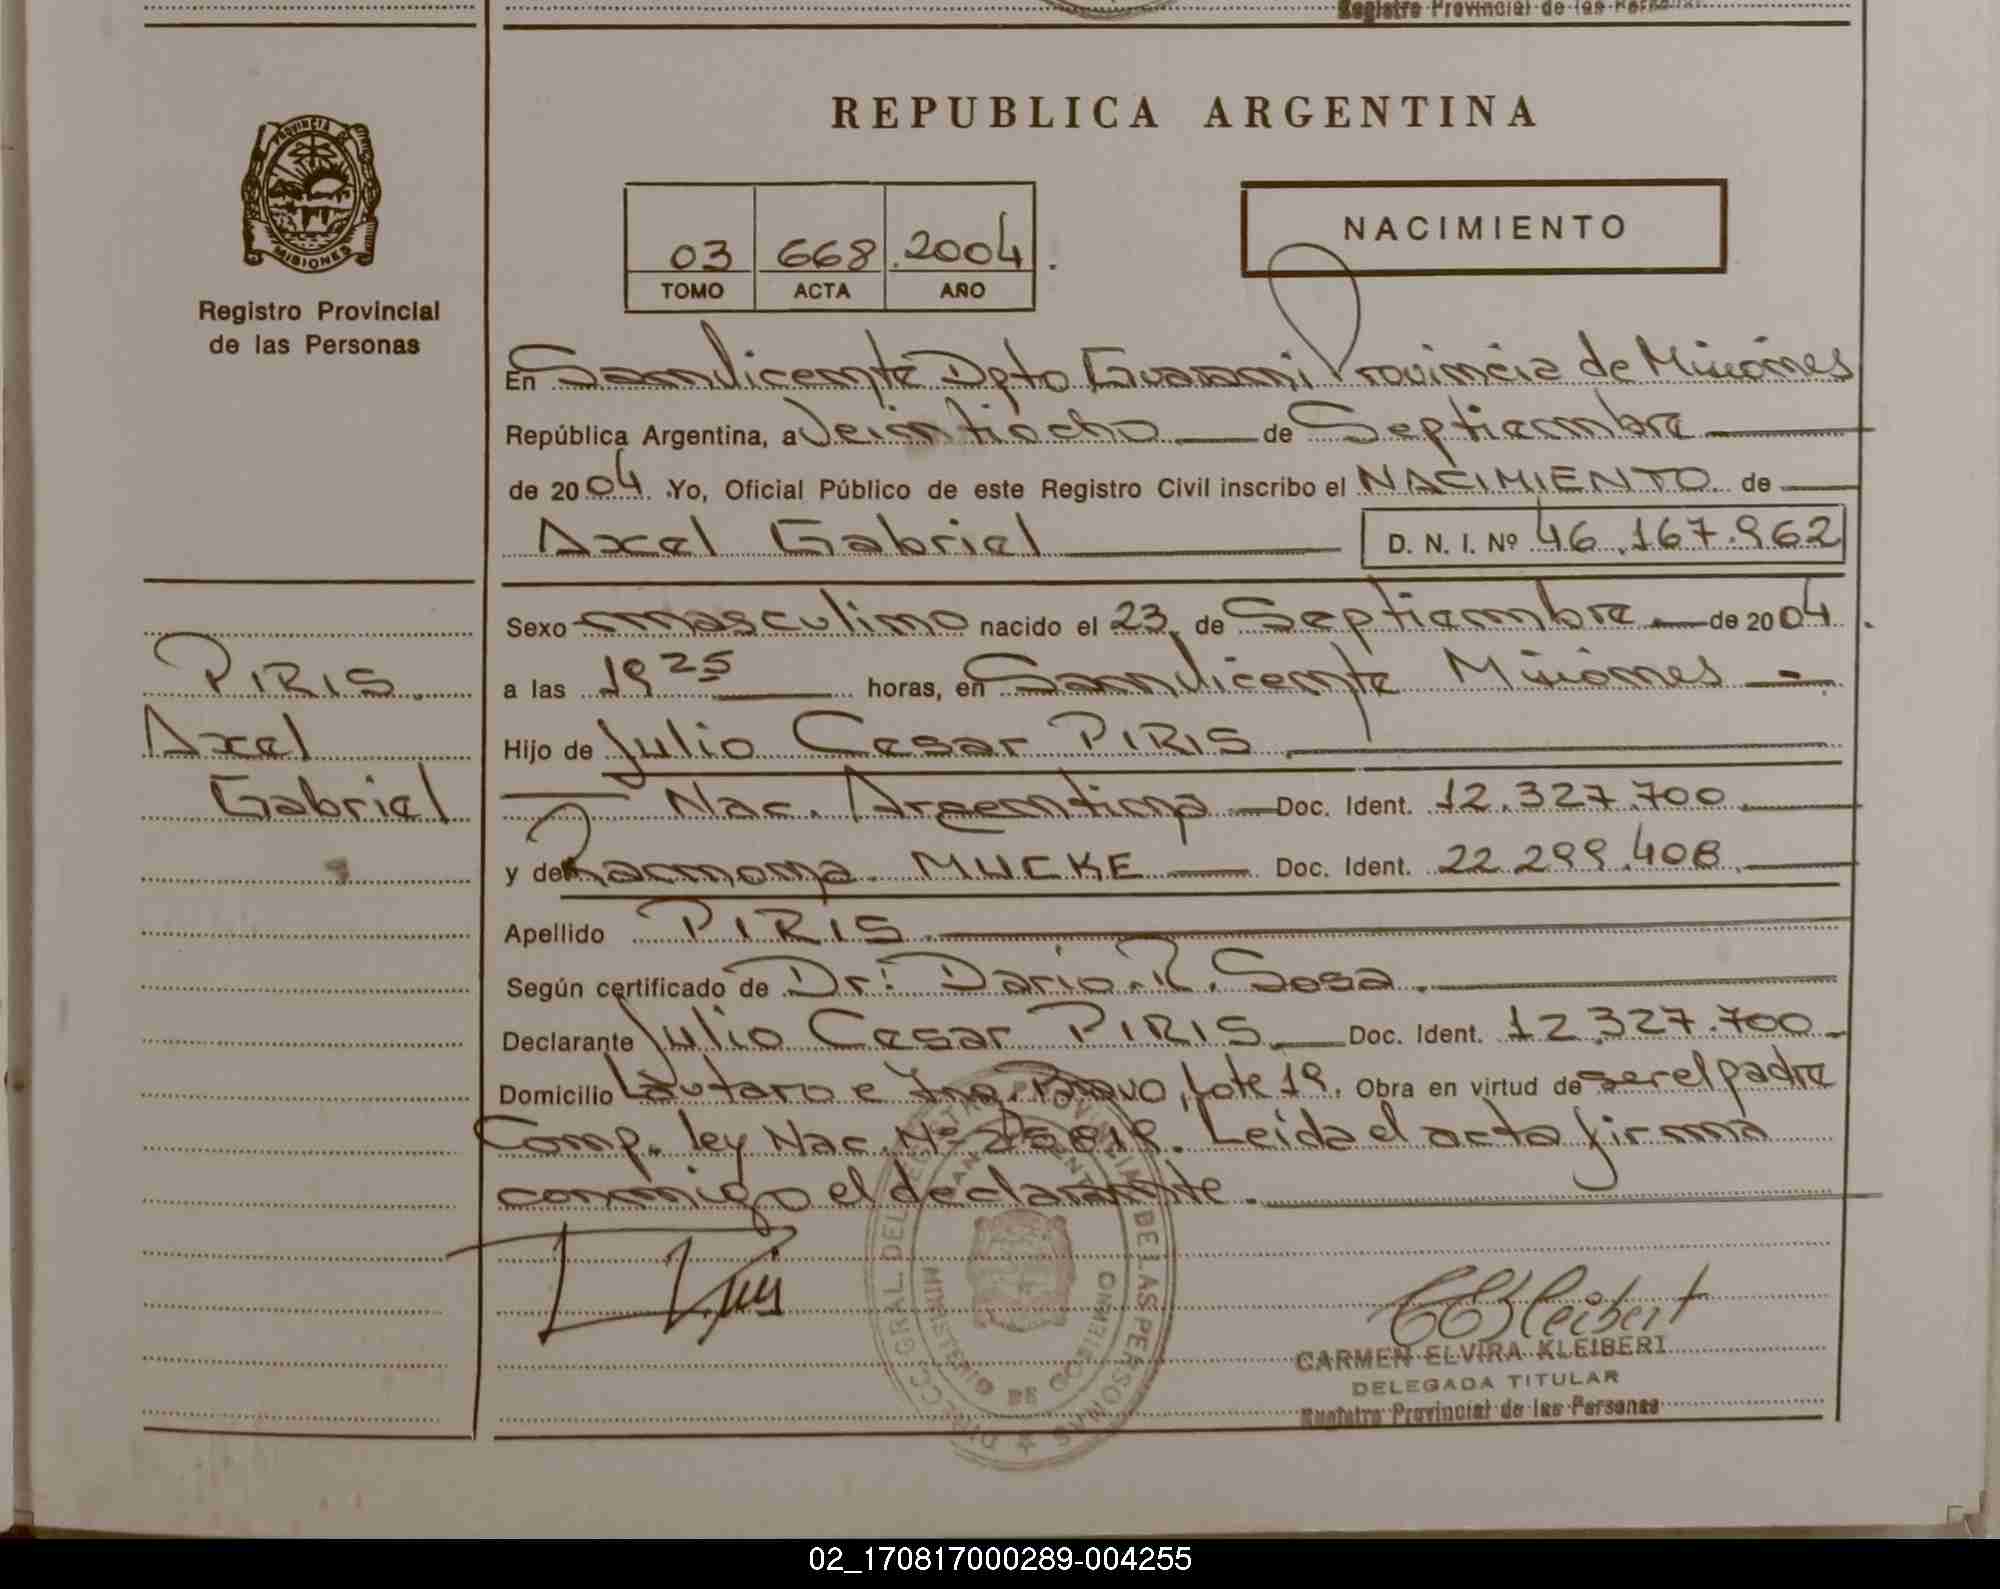 Registro Provincial de las Personas
REPUBLICA ARGENTINA
PROVINCIA DE
MISIONES
Registro Provincial
de las Personas
NACIMIENTO
03 668 2004.
TOMO ACTA AÑO
En San Vicente Dpto Guarani Provincia de Misiones
República Argentina, a Veintiocho de Septiembre
de 2004. Yo, Oficial Público de este Registro Civil inscribo el NACIMIENTO de
Axel Gabriel D. N. I. Nº 46.167.962
Sexo masculino nacido el 23 de Septiembre de 2004.
a las 19 25 horas, en San Vicente Misiones
Hijo de Julio Cesar PIRIS
Nac. Argentina Doc. Ident. 12.327.700
y de Ramona MUCKE Doc. Ident. 22.299.408
Apellido PIRIS
Según certificado de Dr: Dario R. Sosa
Declarante Julio Cesar PIRIS Doc. Ident. 12.327.700
Domicilio Lautaro e Ing. Bravo, lote 19. Obra en virtud de ser el padre
Comp. ley Nac. Nº Leida el acta firma
conmigo el declarante.
PIRIS
Axel
Gabriel
DIRECC. GRAL. DEL REGISTRO PROVINCIAL DE LAS PERSONAS
MINISTERIO DE GOBIERNO
CEKleibert
CARMEN ELVIRA KLEIBERT
DELEGADA TITULAR
Registro Provincial de las Personas
02_170817000289-004255